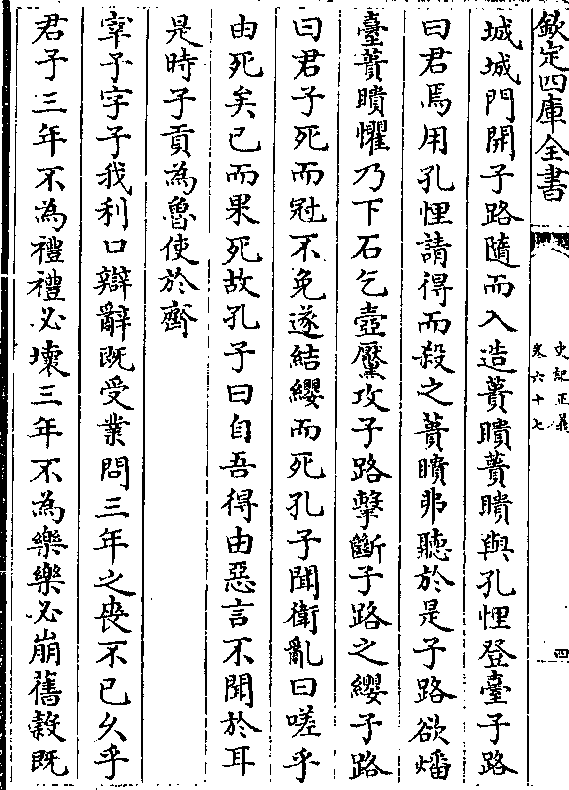 欽定四庫全書
史記正義
卷六十七
四
城城門開子路隨而入造蕢聵蕢聵與孔悝登臺子路
曰君焉用孔悝請得而殺之蕢聵弗聽於是子路欲燔
臺蕢聵懼乃下石乞壺黶攻子路擊斷子路之纓子路
曰君子死而冠不免遂結纓而死孔子聞衛亂曰嗟乎
由死矣已而果死故孔子曰自吾得由惡言不聞於耳
是時子貢為魯使於齊
宰予字子我利口辯辭既受業問三年之喪不已久乎
君子三年不為禮禮必壞三年不為樂樂必崩舊穀既